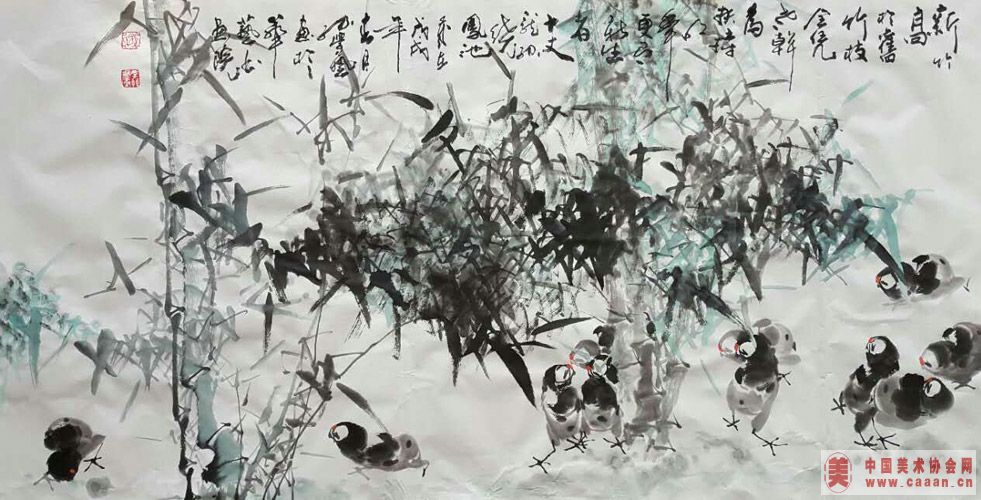 新竹
高
於舊
竹枝
全凭
老幹
為
扶持
明
年
更有
新生
者
十丈
龍孫
繞
鳳池
戊戌
年
春月
畫於
華
藝術
畫院
美 中国美术协会网
www.caaan.cn